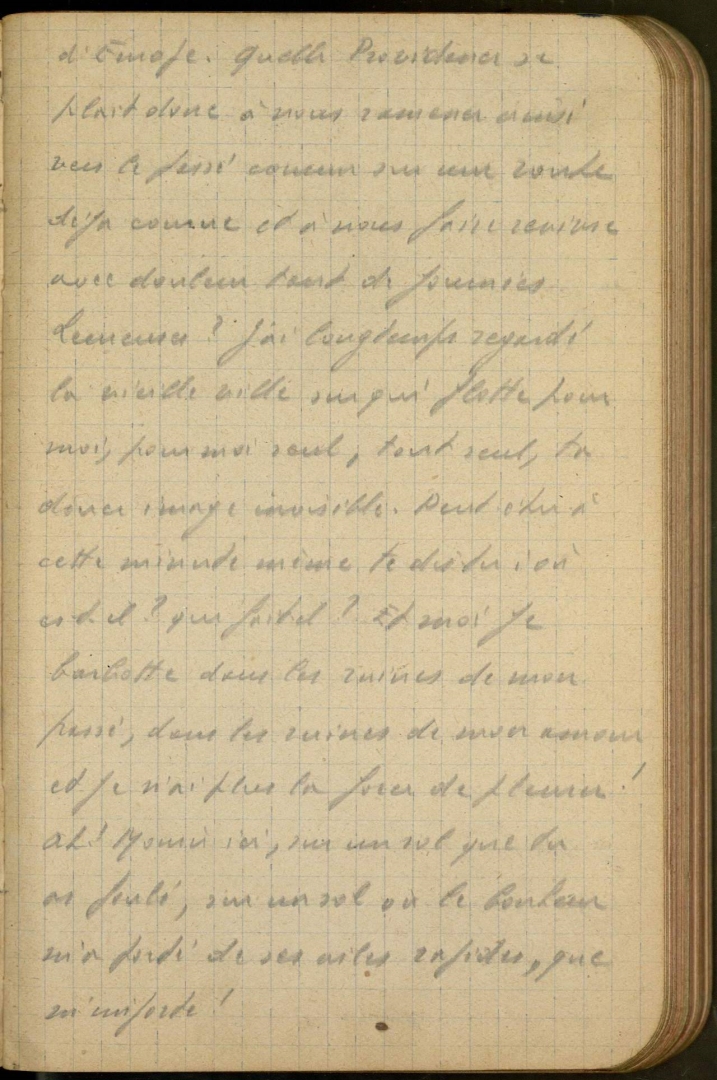 d'Europe. Quelle Providence se
plait donc à nous ramener ainsi
vers le passé comme sur une route
déjà connue et à nous faire revivre
avec douleur tant de journées
heureuses ? J'ai longtemps regardé
la vieille ville sur qui flotte pour
moi, pour moi seul, tout seul, ta
douce image invisible. Peut être à
cette minute même te dis tu : où
est il ? que fait il ? Et moi je
barbotte dans les ruines de mon
passé, dans les ruines de mon amour
et je n'ai plus la force de pleurer !
Ah ! Mourir ici, sur un sol que tu
as foulé, sur un sol où le bonheur
m'a de ses ailes rapides, que
m'importe !